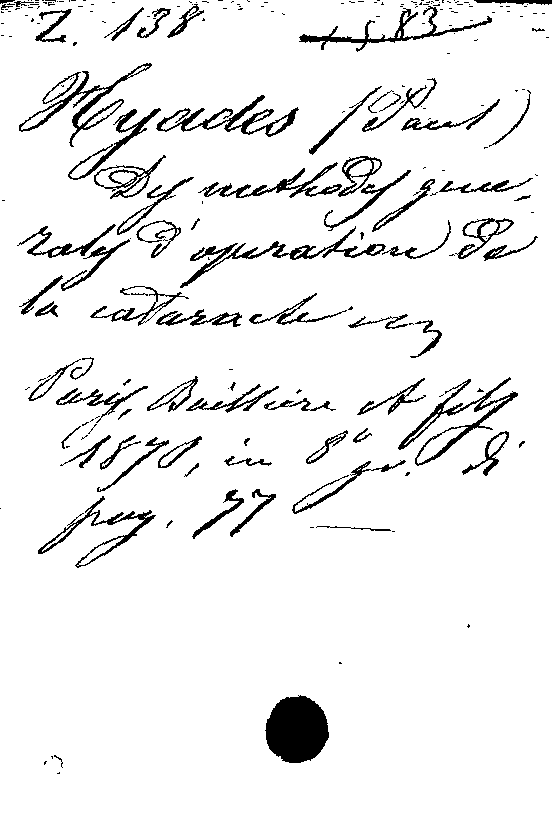 Z. 138
Hyades (Paul)
Des methodes gene-
rales d'operation de
la cataracte
Paris, Baillière et fils
1870, in 8° gr. di
pag. 77